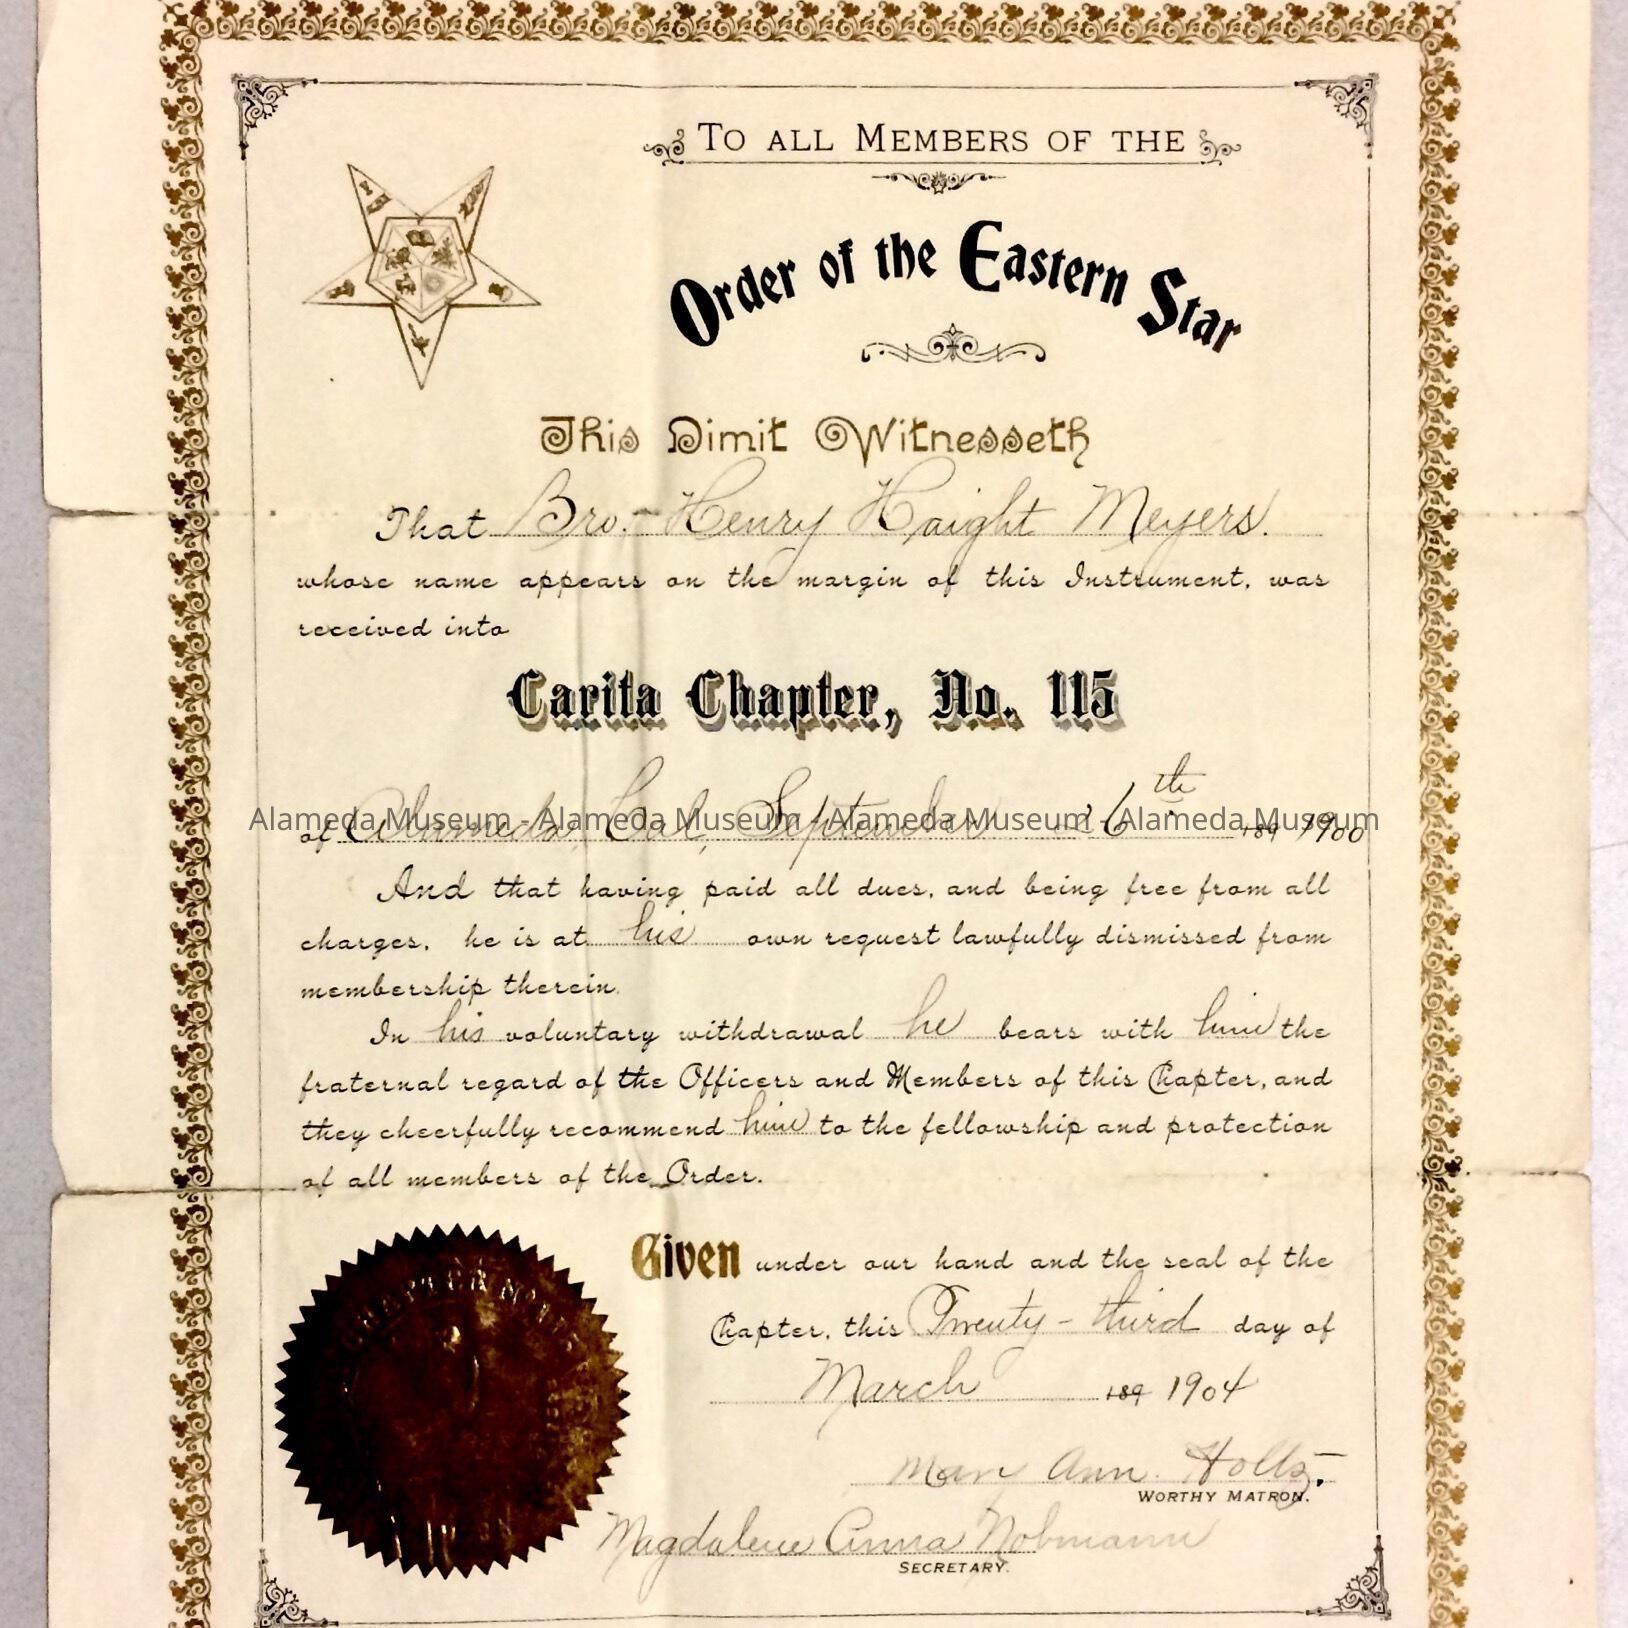 To all Members of the
Order of the Eastern Star
This Dimit Witnesseth
That Bro. Henry Haight Meyers.
whose name appears on the margin of this Instrument, was
received into
Carita Chapter, No. 115
of Alameda, Cal, September 26th 189 1900
Alameda Museum - Alameda Museum - Alameda Museum - Alameda Museum
And that having paid all dues, and being free from all
charges, he is at his own request lawfully dismissed from
membership therein.
In his voluntary withdrawal he bears with him the
fraternal regard of the Officers and Members of this Chapter, and
they cheerfully recommend him to the fellowship and protection
of all members of the Order.
Given under our hand and the seal of the
Chapter, this Twenty-third day of
March 189 1904
Mary Ann. Holtz.
WORTHY MATRON.
Magdalene Anna Nobmann
SECRETARY.